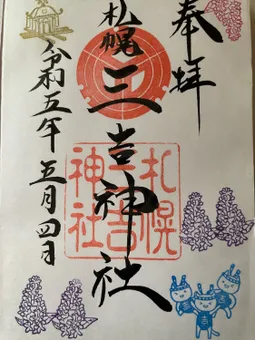 奉拝
札幌
三吉神社
令和五年五月四日
札幌
三吉
神社
吉